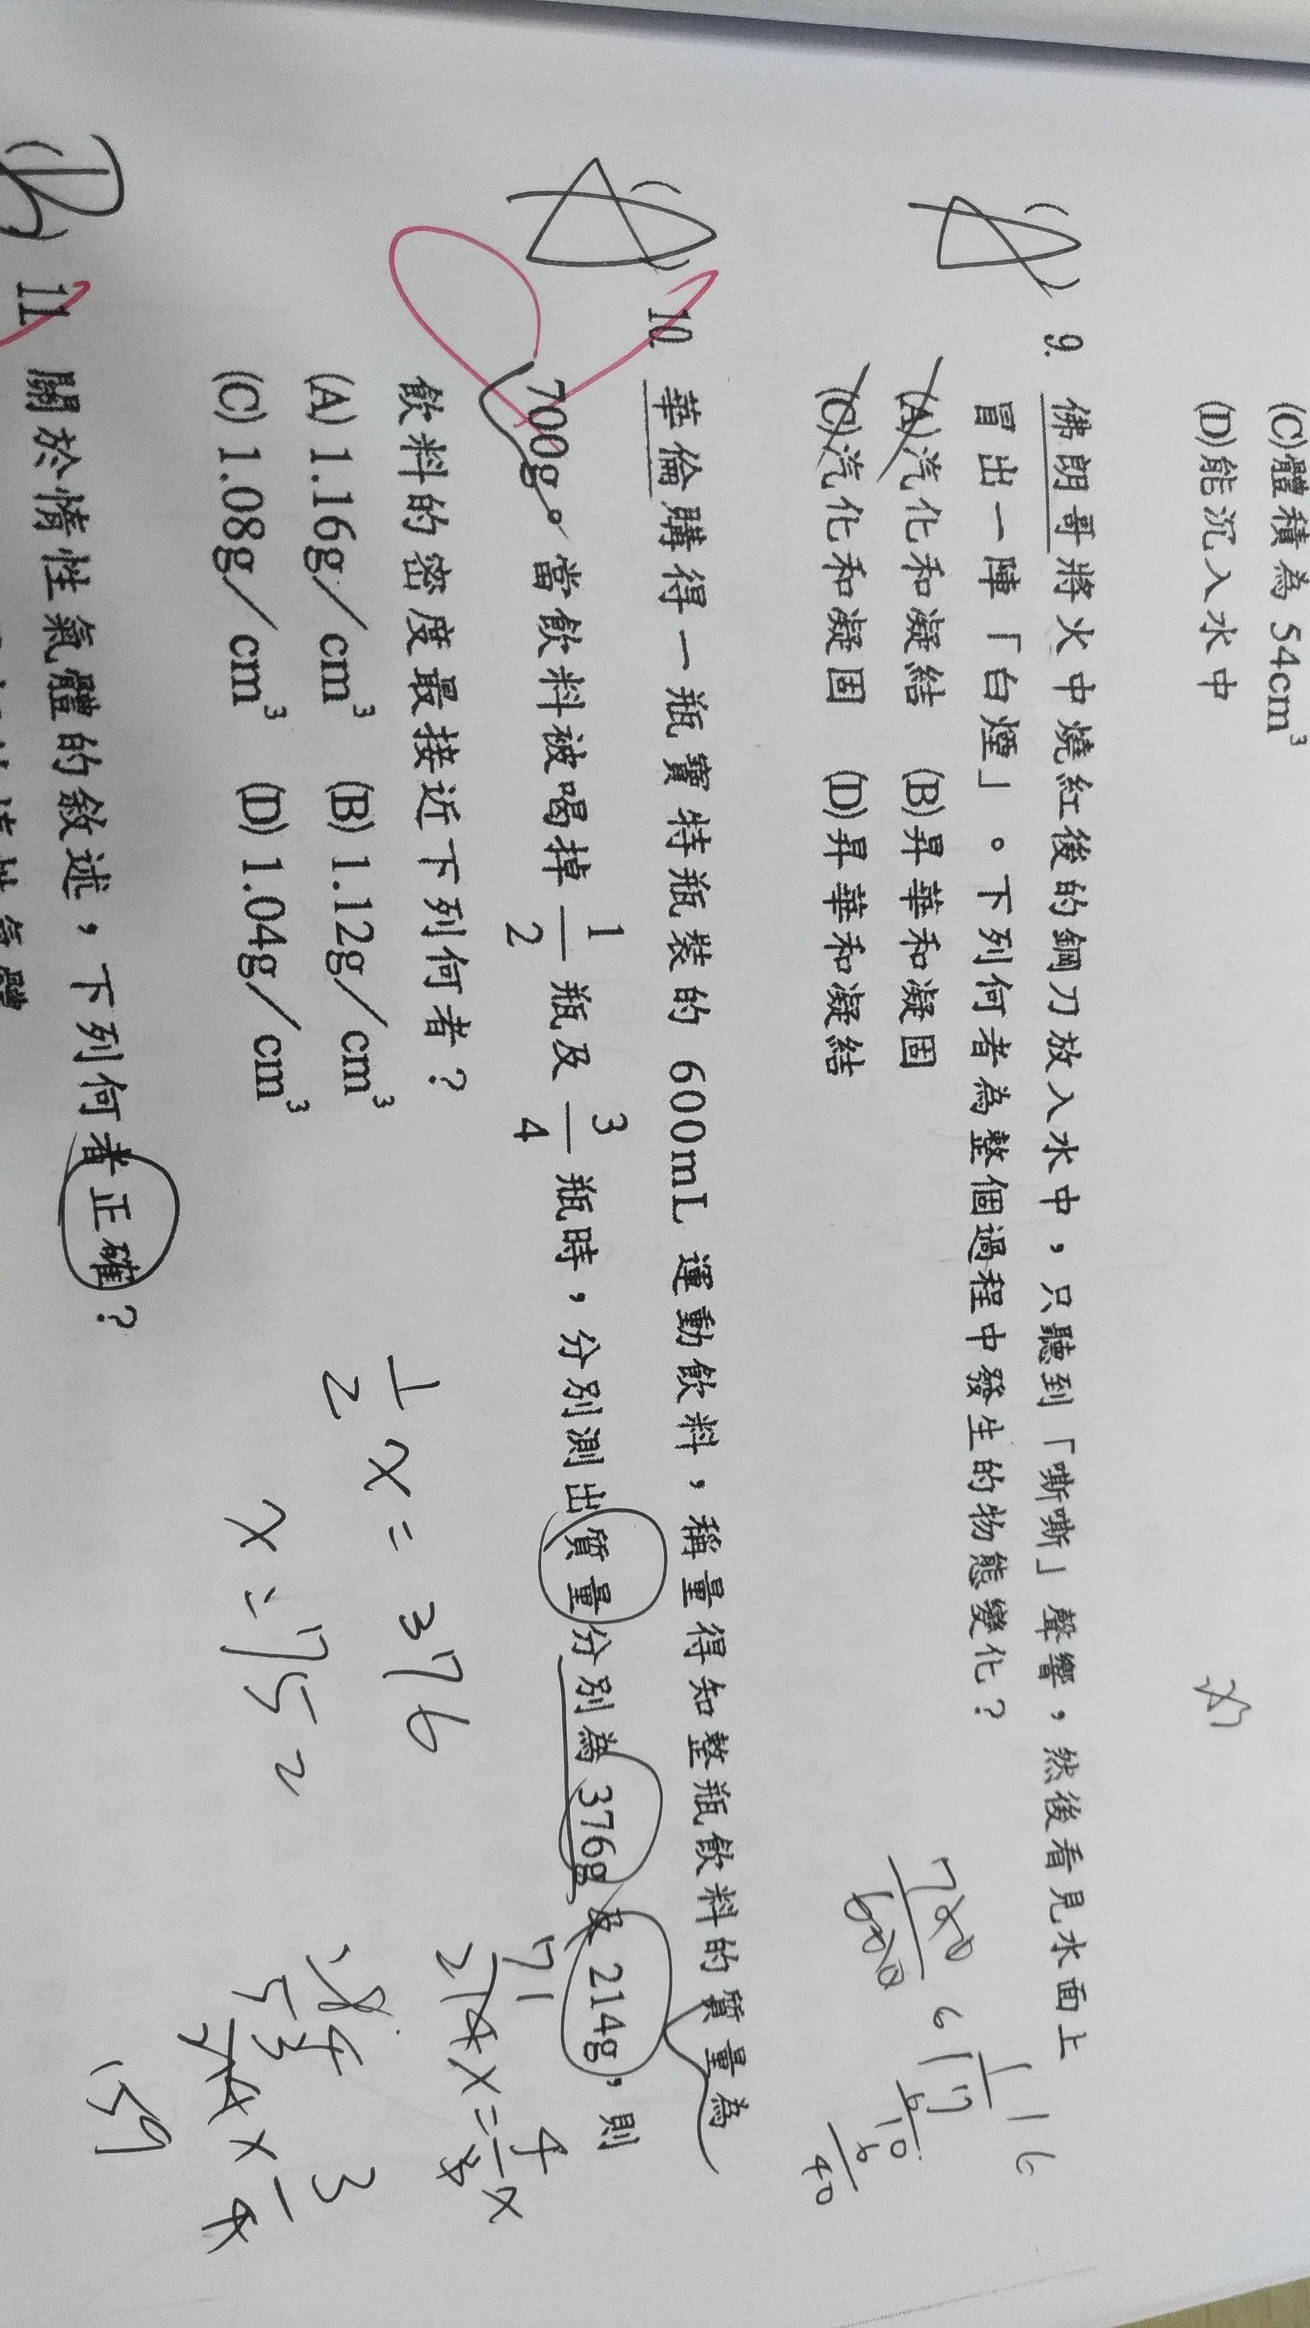 (C)體積為 54cm³
(D)能沉入水中
(A) 9. 佛朗哥將火中燒紅後的鋼刀放入水中，只聽到「嘶嘶」聲響，然後看見水面上
冒出一陣「白煙」。下列何者為整個過程中發生的物態變化？
(A)汽化和凝結 (B)昇華和凝固
(C)汽化和凝固 (D)昇華和凝結
700
600
6 17
1 16
6
10
6
40
(A) 10. 華倫購得一瓶寶特瓶裝的 600mL 運動飲料，稱量得知整瓶飲料的質量為
700g。當飲料被喝掉 1/2 瓶及 3/4 瓶時，分別測出質量分別為 376g 及 214g，則
飲料的密度最接近下列何者？
(A) 1.16g／cm³ (B) 1.12g／cm³
(C) 1.08g／cm³ (D) 1.04g／cm³
1/2 x = 376
x = 752
71
214 x =
53
214 x 3/4
159
(B) 11. 關於惰性氣體的敘述，下列何者正確？